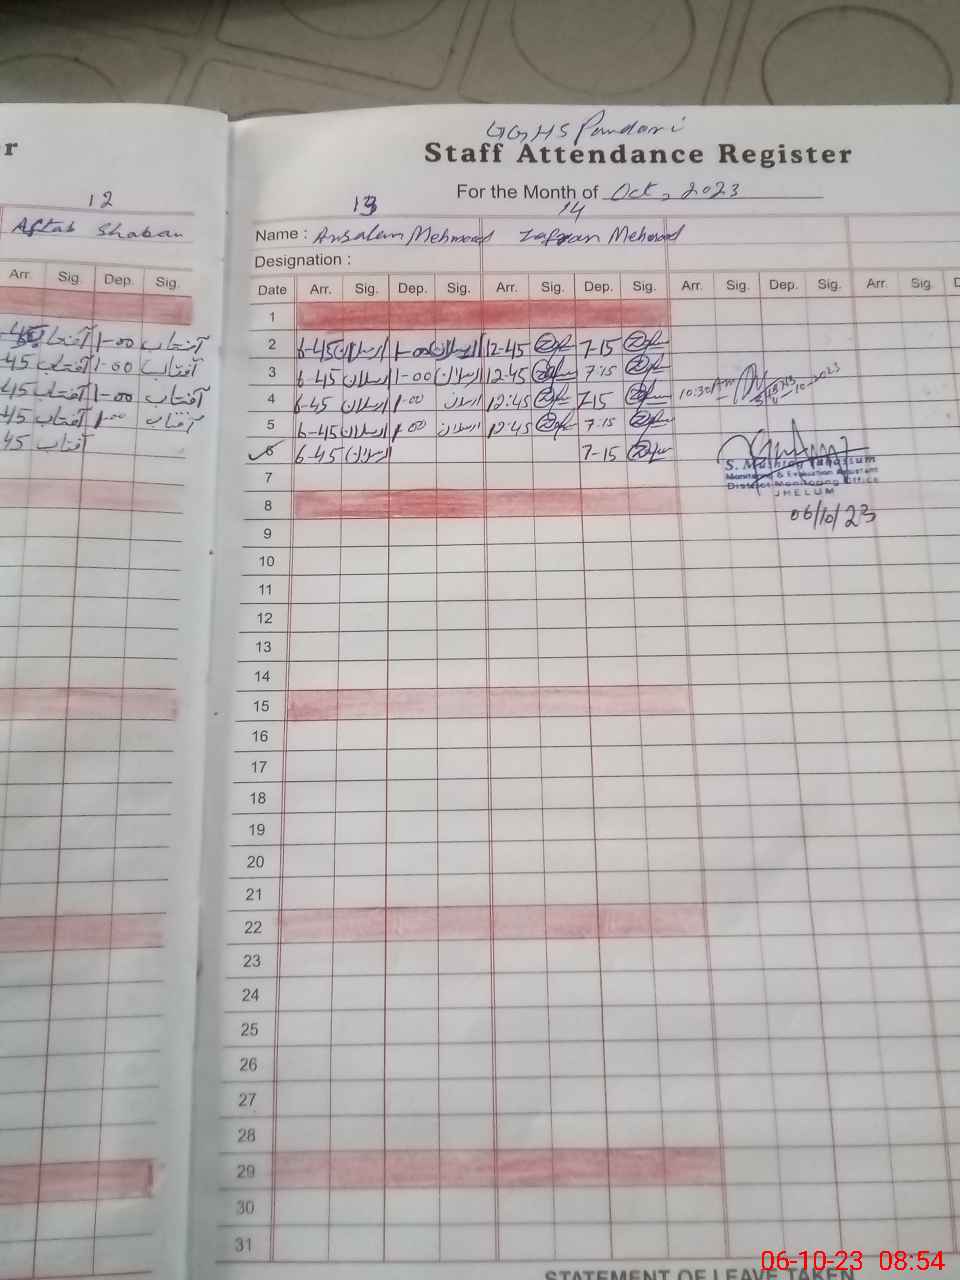 r
12
Aftab Shaban
Arr. Sig. Dep. Sig.
آفتاب 1-00 آفتاب
45 آفتاب 1-00 آفتاب
45 آفتاب 1-00 آفتاب
45 آفتاب 1-00 آفتاب
45 آفتاب
GGHS Pandori
Staff Attendance Register
For the Month of Oct, 2023
13 14
Name : Arsalan Mehmood Zafran Mehmood
Designation :
Date Arr. Sig. Dep. Sig. Arr. Sig. Dep. Sig. Arr. Sig. Dep. Sig. Arr. Sig. D
1
2 6-45 ارسلان 1-00 ارسلان 12-45 7-15
3 6-45 ارسلان 1-00 ارسلان 12:45 7:15
4 6-45 ارسلان 1-00 ارسلان 12:45 7-15 10:30 Am 10-2023
5 6-45 ارسلان 1-00 ارسلان 12:45 7:15
6 6-45 ارسلان 7-15
S. Mushtaq Tabassum
Monitoring & Evaluation Assistant
District Monitoring Office
JHELUM
06/10/23
7
8
9
10
11
12
13
14
15
16
17
18
19
20
21
22
23
24
25
26
27
28
29
30
31
STATEMENT OF LEAVE TAKEN
06-10-23 08:54